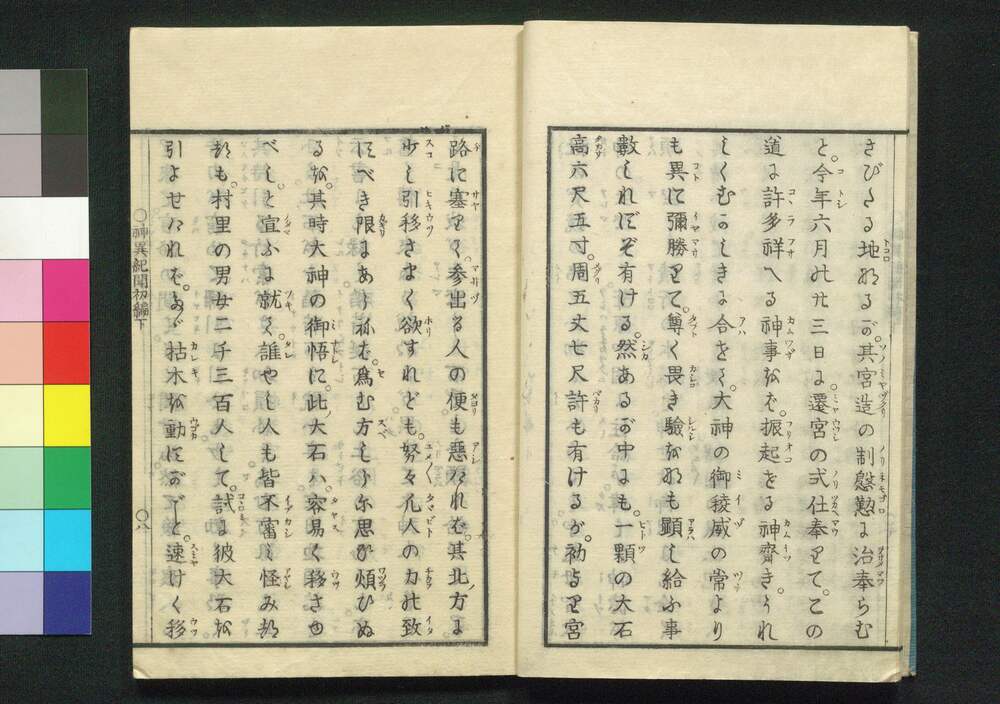 さびたる地なるが。其宮造の制慇懃に治奉らむ
と。今年六月の廿三日に。遷宮の式仕奉りて。この
道に許多祥へる神事をば。振起せる神齋き。うれ
しくむかしきに合せて。大神の御稜威の常より
も異に彌勝りて。尊く畏き驗をも顯し給ふ事
數しれずぞ有ける。然あるが中にも。一顆の大石
高六尺五寸。周五丈七尺許も有けるが。初より宮
路に塞りて。參出る人の便も惡ければ。其北ノ方に
少し引移さまく欲すれども。努々凡人の力の致
すべき限にあらねば。爲む方しらに思ひ煩ひぬ
るを。其時大神の御悟に。此ノ大石ハ。容易く移さゆ
べしと宣ふに就て。誰やし人も皆不審し怪み
も。村里の男女二千三百人して。試に彼大石を
引よせけれど。あだ枯木を動すがごと。速けく移
〇神異紀聞初編下
〇八